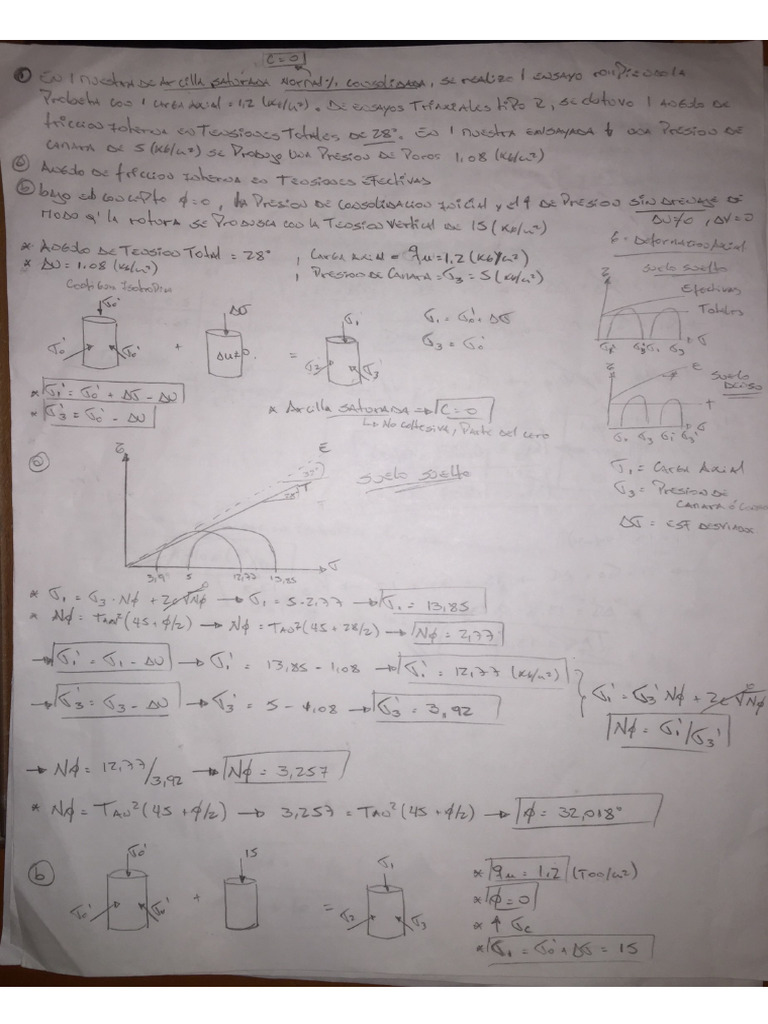 C=0
① En 1 muestra de Arcilla saturada normal% consolidada, se realizo 1 ensayo rompiendo la
Probeta con 1 carga Axial = 1,2 (Kg/cm²). De ensayos Triaxiales tipo 2, se obtuvo 1 Angulo de
friccion Interna en Tensiones Totales de 28°. En 1 muestra ensayada a una Presion de
camara de 5 (Kg/cm²) se Produjo una Presion de Poros 1,08 (Kg/cm²)
ⓐ Angulo de friccion Interna en Tensiones Efectivas
ⓑ bajo el concepto φ=0, la Presion de consolidacion Inicial y el ↑ de Presion sin drenaje de
modo q' la rotura se Produsca con la Tension Vertical de 15 (Kg/cm²)
ΔU≠0, ΔV=0
* Angulo de Tension Total = 28°, Carga Axial = qu = 1,2 (Kg/cm²)
* ΔU = 1,08 (Kg/cm²), Presion de Camara = σ3 = 5 (Kg/cm²)
6 - Deformacion Axial
suelo suelto
τ
Efectivas
Totales
σ
σ0' Δσ σ1
σ1 = σ0' + Δσ
σ3 = σ0'
σ0' σ0' + ΔU≠0. = σ2 σ3
τ
E
suelo
Denso
T
σ1 σ3 σ1' σ3' σ
* σ1' = σ0' + Δσ - ΔU
* σ3' = σ0' - ΔU
* Arcilla saturada → C=0
↳ No cohesiva, Parte del cero
σ1 = Carga Axial
σ3 = Presion de
Camara ó
Δσ = Esf Desviador
ⓐ
τ
E
T
28°
suelo suelto
3,9 5 12,77 13,85 σ
* σ1 = σ3 · Nφ + 2c√Nφ → σ1 = 5 · 2,77 → σ1 = 13,85
0
* Nφ = Tan²(45 + φ/2) → Nφ = Tan²(45 + 28/2) → Nφ = 2,77
→ σ1' = σ1 - ΔU → σ1' = 13,85 - 1,08 → σ1' = 12,77 (Kg/cm²)
→ σ3' = σ3 - ΔU → σ3' = 5 - 1,08 → σ3' = 3,92
σ1' = σ3' Nφ + 2c√Nφ
Nφ = σ1'/σ3'
→ Nφ = 12,77/3,92 → Nφ = 3,257
* Nφ = Tan²(45 + φ/2) → 3,257 = Tan²(45 + φ/2) → φ = 32,018°
ⓑ
σ0' 15 σ1
σ0' σ0' + = σ2 σ3
* qu = 1,2 (Ton/m²)
* φ = 0
* ↑ σc
* σ1 = σ0' + Δσ = 15